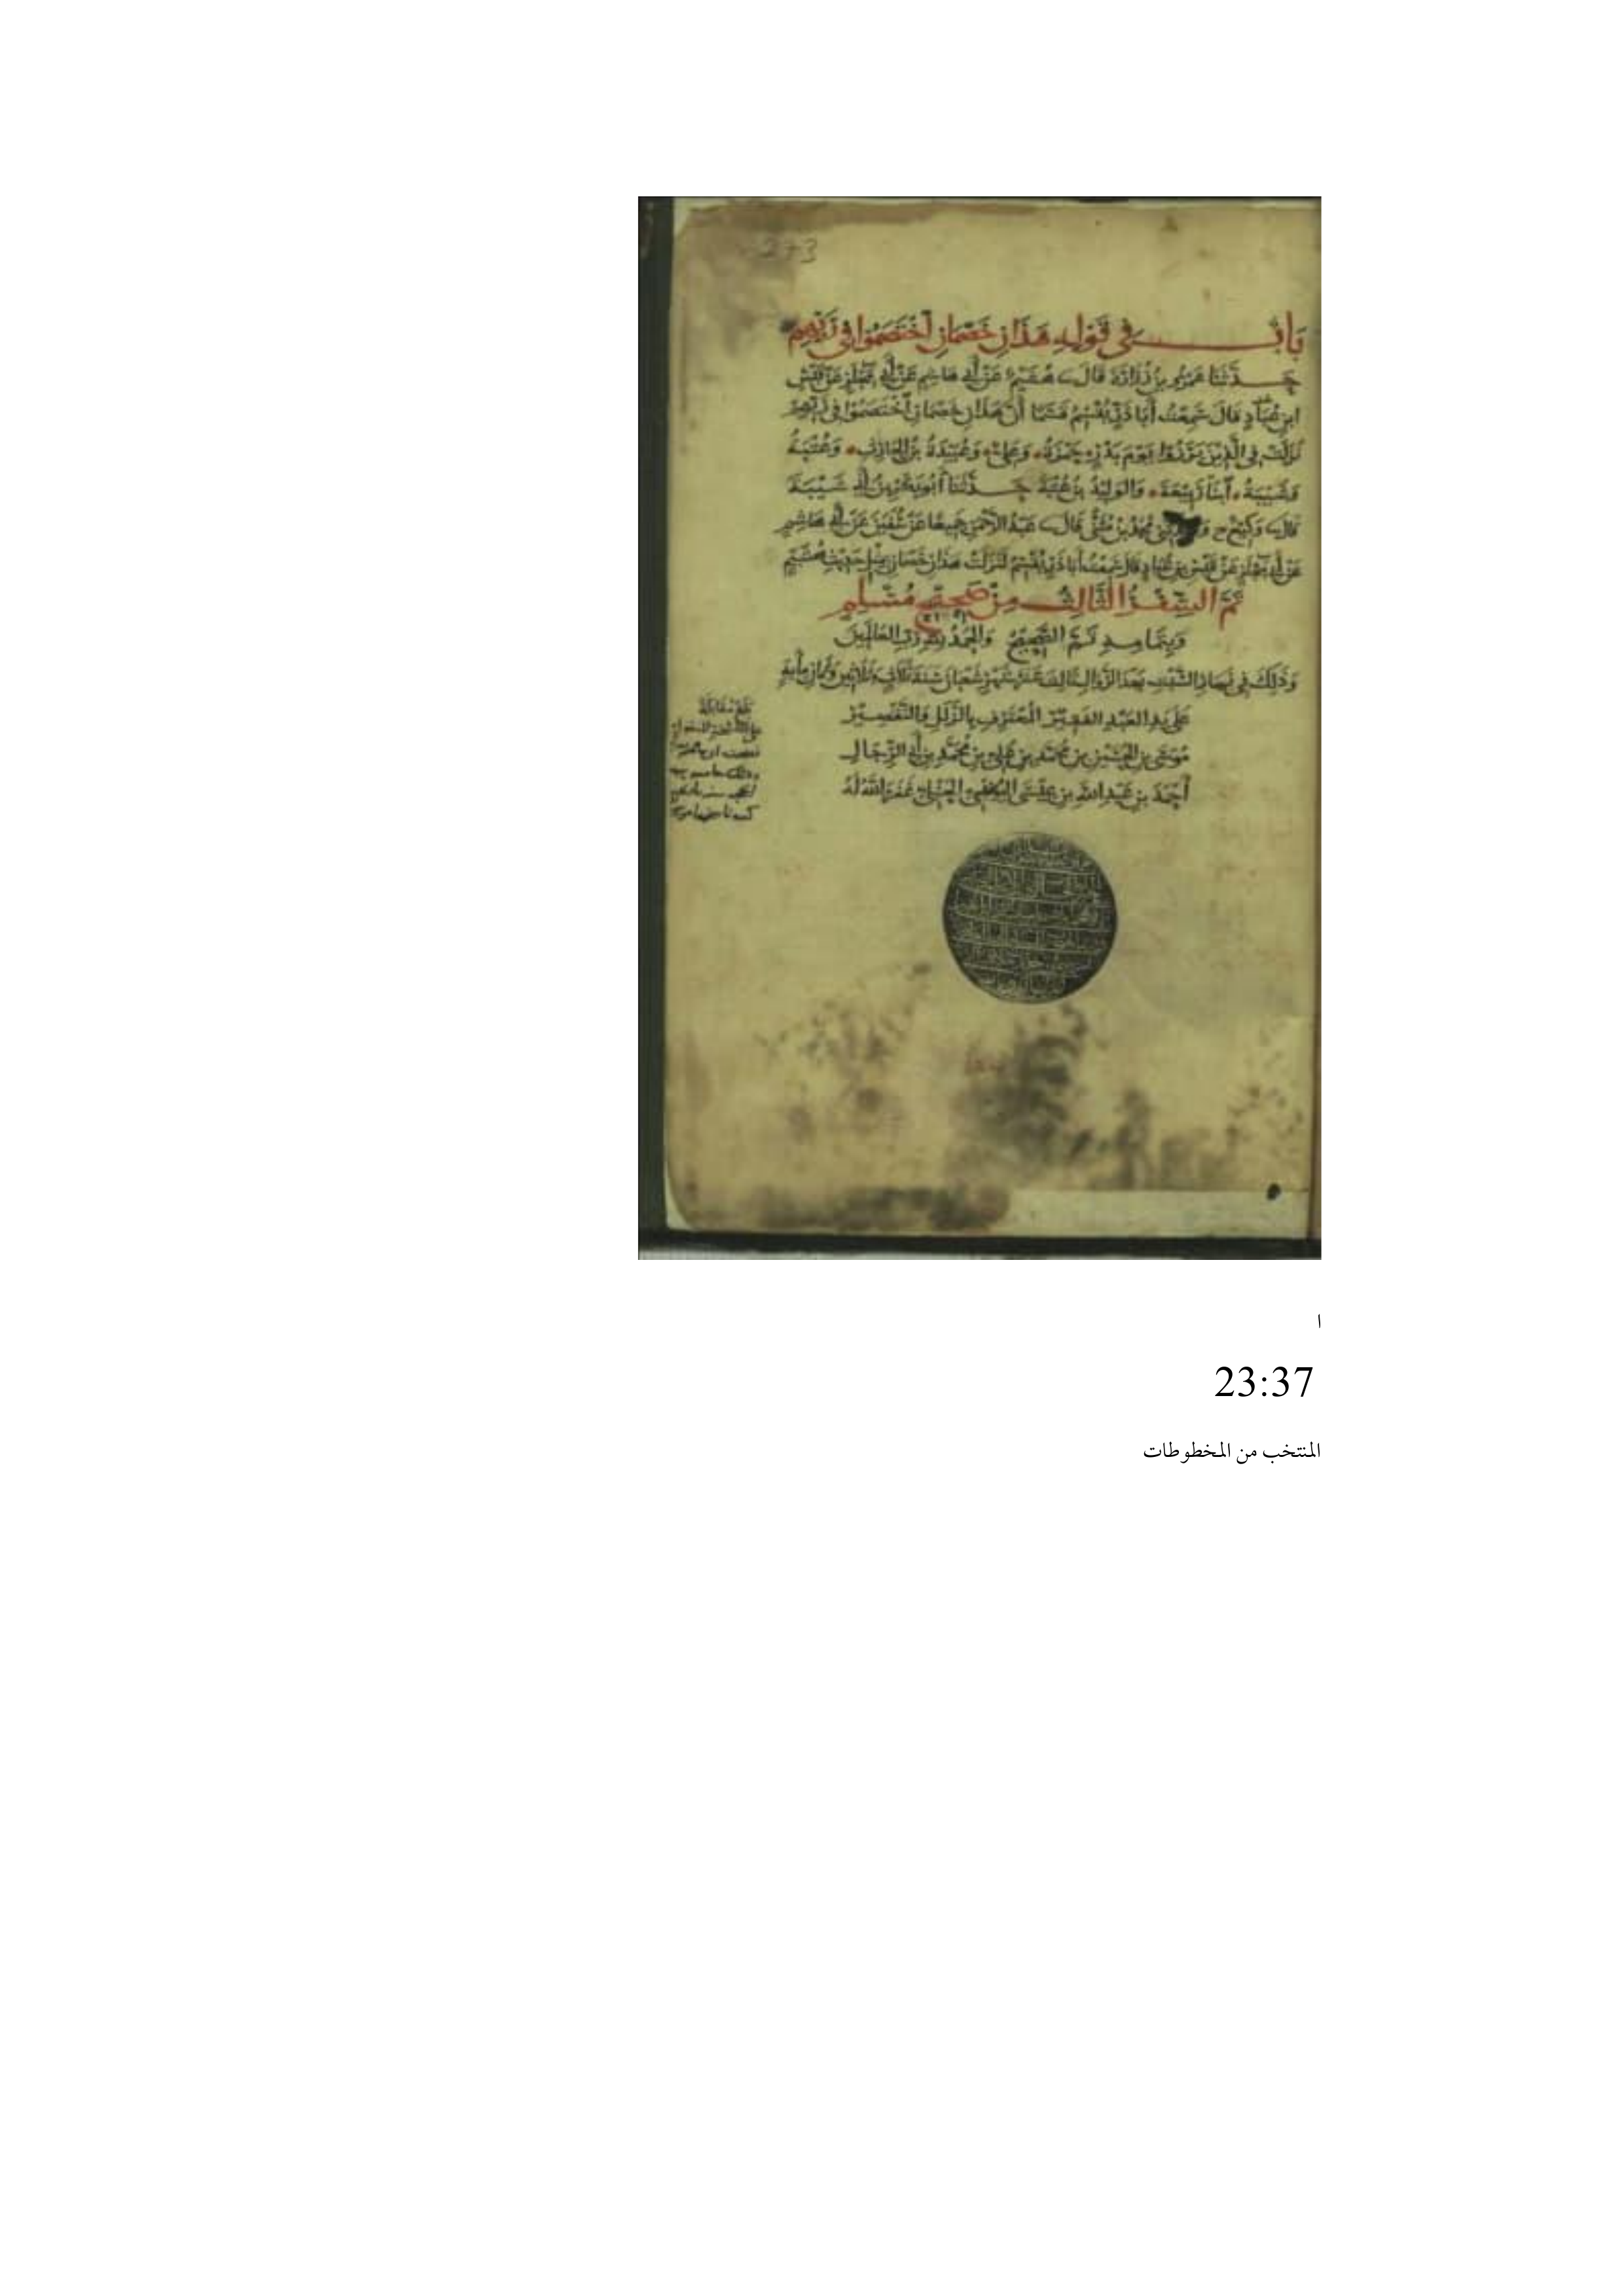 باب في قوله هذان خصمان اختصموا في ربهم
حدثنا عمرو بن زرارة قال هشيم عن أبي هاشم عن أبي مجلز عن قيس
ابن عباد قال سمعت أبا ذر يقسم قسما أن هذان خصمان اختصموا في ربهم
نزلت في الذين برزوا يوم بدر حمزة وعلي وعبيدة بن الحارث وعتبة
وشيبة ابنا ربيعة والوليد بن عتبة حدثنا أبو بكر بن أبي شيبة
قال وكيع ح محمد بن مثنى قال عبد الرحمن جميعا عن سفين عن أبي هاشم
عن أبي مجلز عن قيس بن عباد قال سمعت أبا ذر يقسم لنزلت هذان خصمان بمثل حديث هشيم
تم السفر الثالث من صحيح مسلم
وبتمامه تم الصحيح والحمد لله رب العالمين
وذلك في نهار السبت بعد الزوال الثالث عشر شهر شعبان سنة ثلاث وثلاثين وثمان مأية
على يد العبد الفقير المعترف بالزلل والتقصير
موسى بن الحسين بن محمد بن علي بن محمد بن أبي الرجال
أحمد بن عبد الله بن عيسى الحنبلي غفر الله له
ا
23:37
المنتخب من المخطوطات